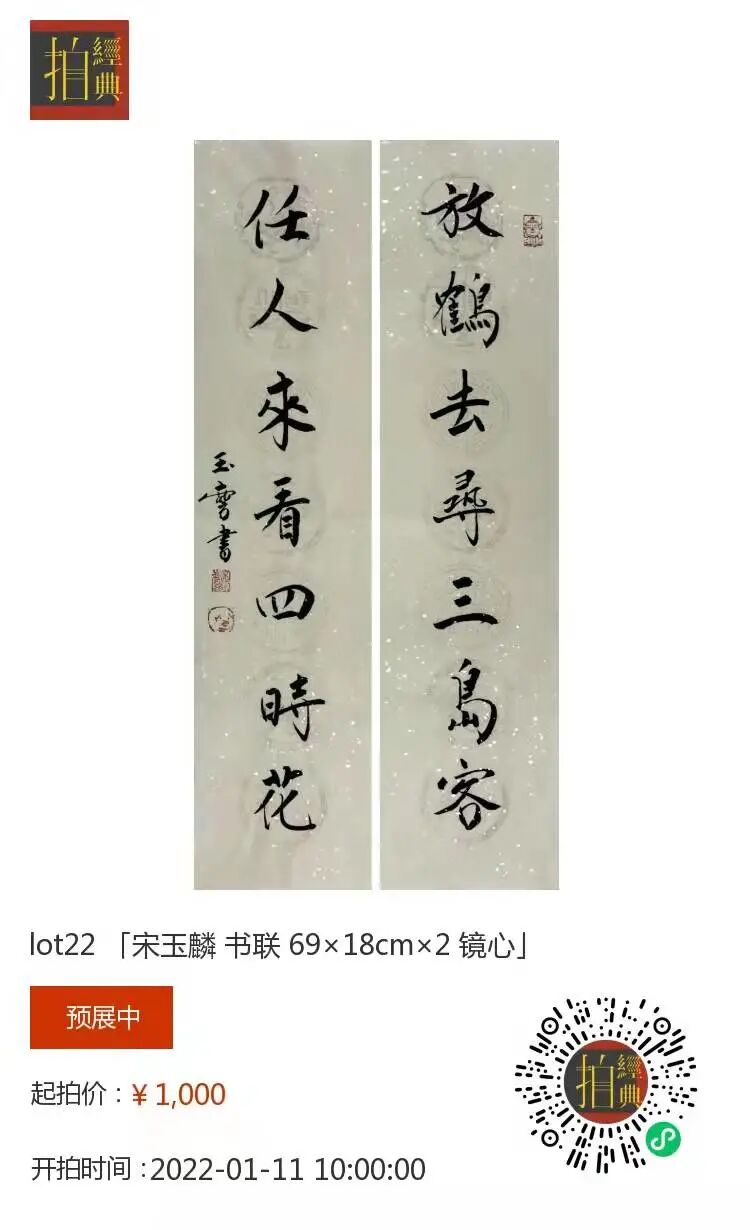 拍經典
放鶴去尋三島客
任人來看四時花
玉麐書
lot22 「宋玉麟 书联 69×18cm×2 镜心」
预展中
起拍价：¥ 1,000
开拍时间：2022-01-11 10:00:00
拍經典